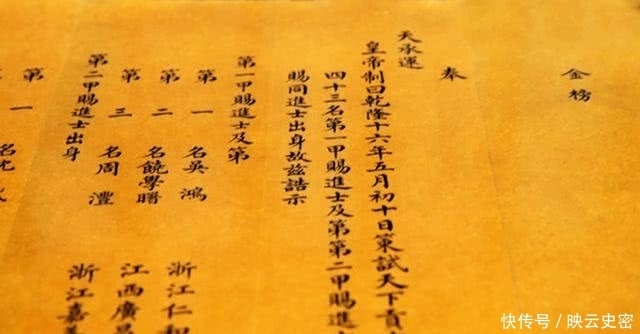 金榜
奉
天承運
皇帝制曰乾隆十六年五月初十日策試天下貢
四十三名第一甲賜進士及第第二甲賜進
賜同進士出身故茲誥示
第一甲賜進士及第
第一名吳鴻 浙江仁和
第二名饒學曙 江西廣昌
第三名周灃 浙江嘉
第二甲賜進士出身
第一名沈
快传号/映云史密